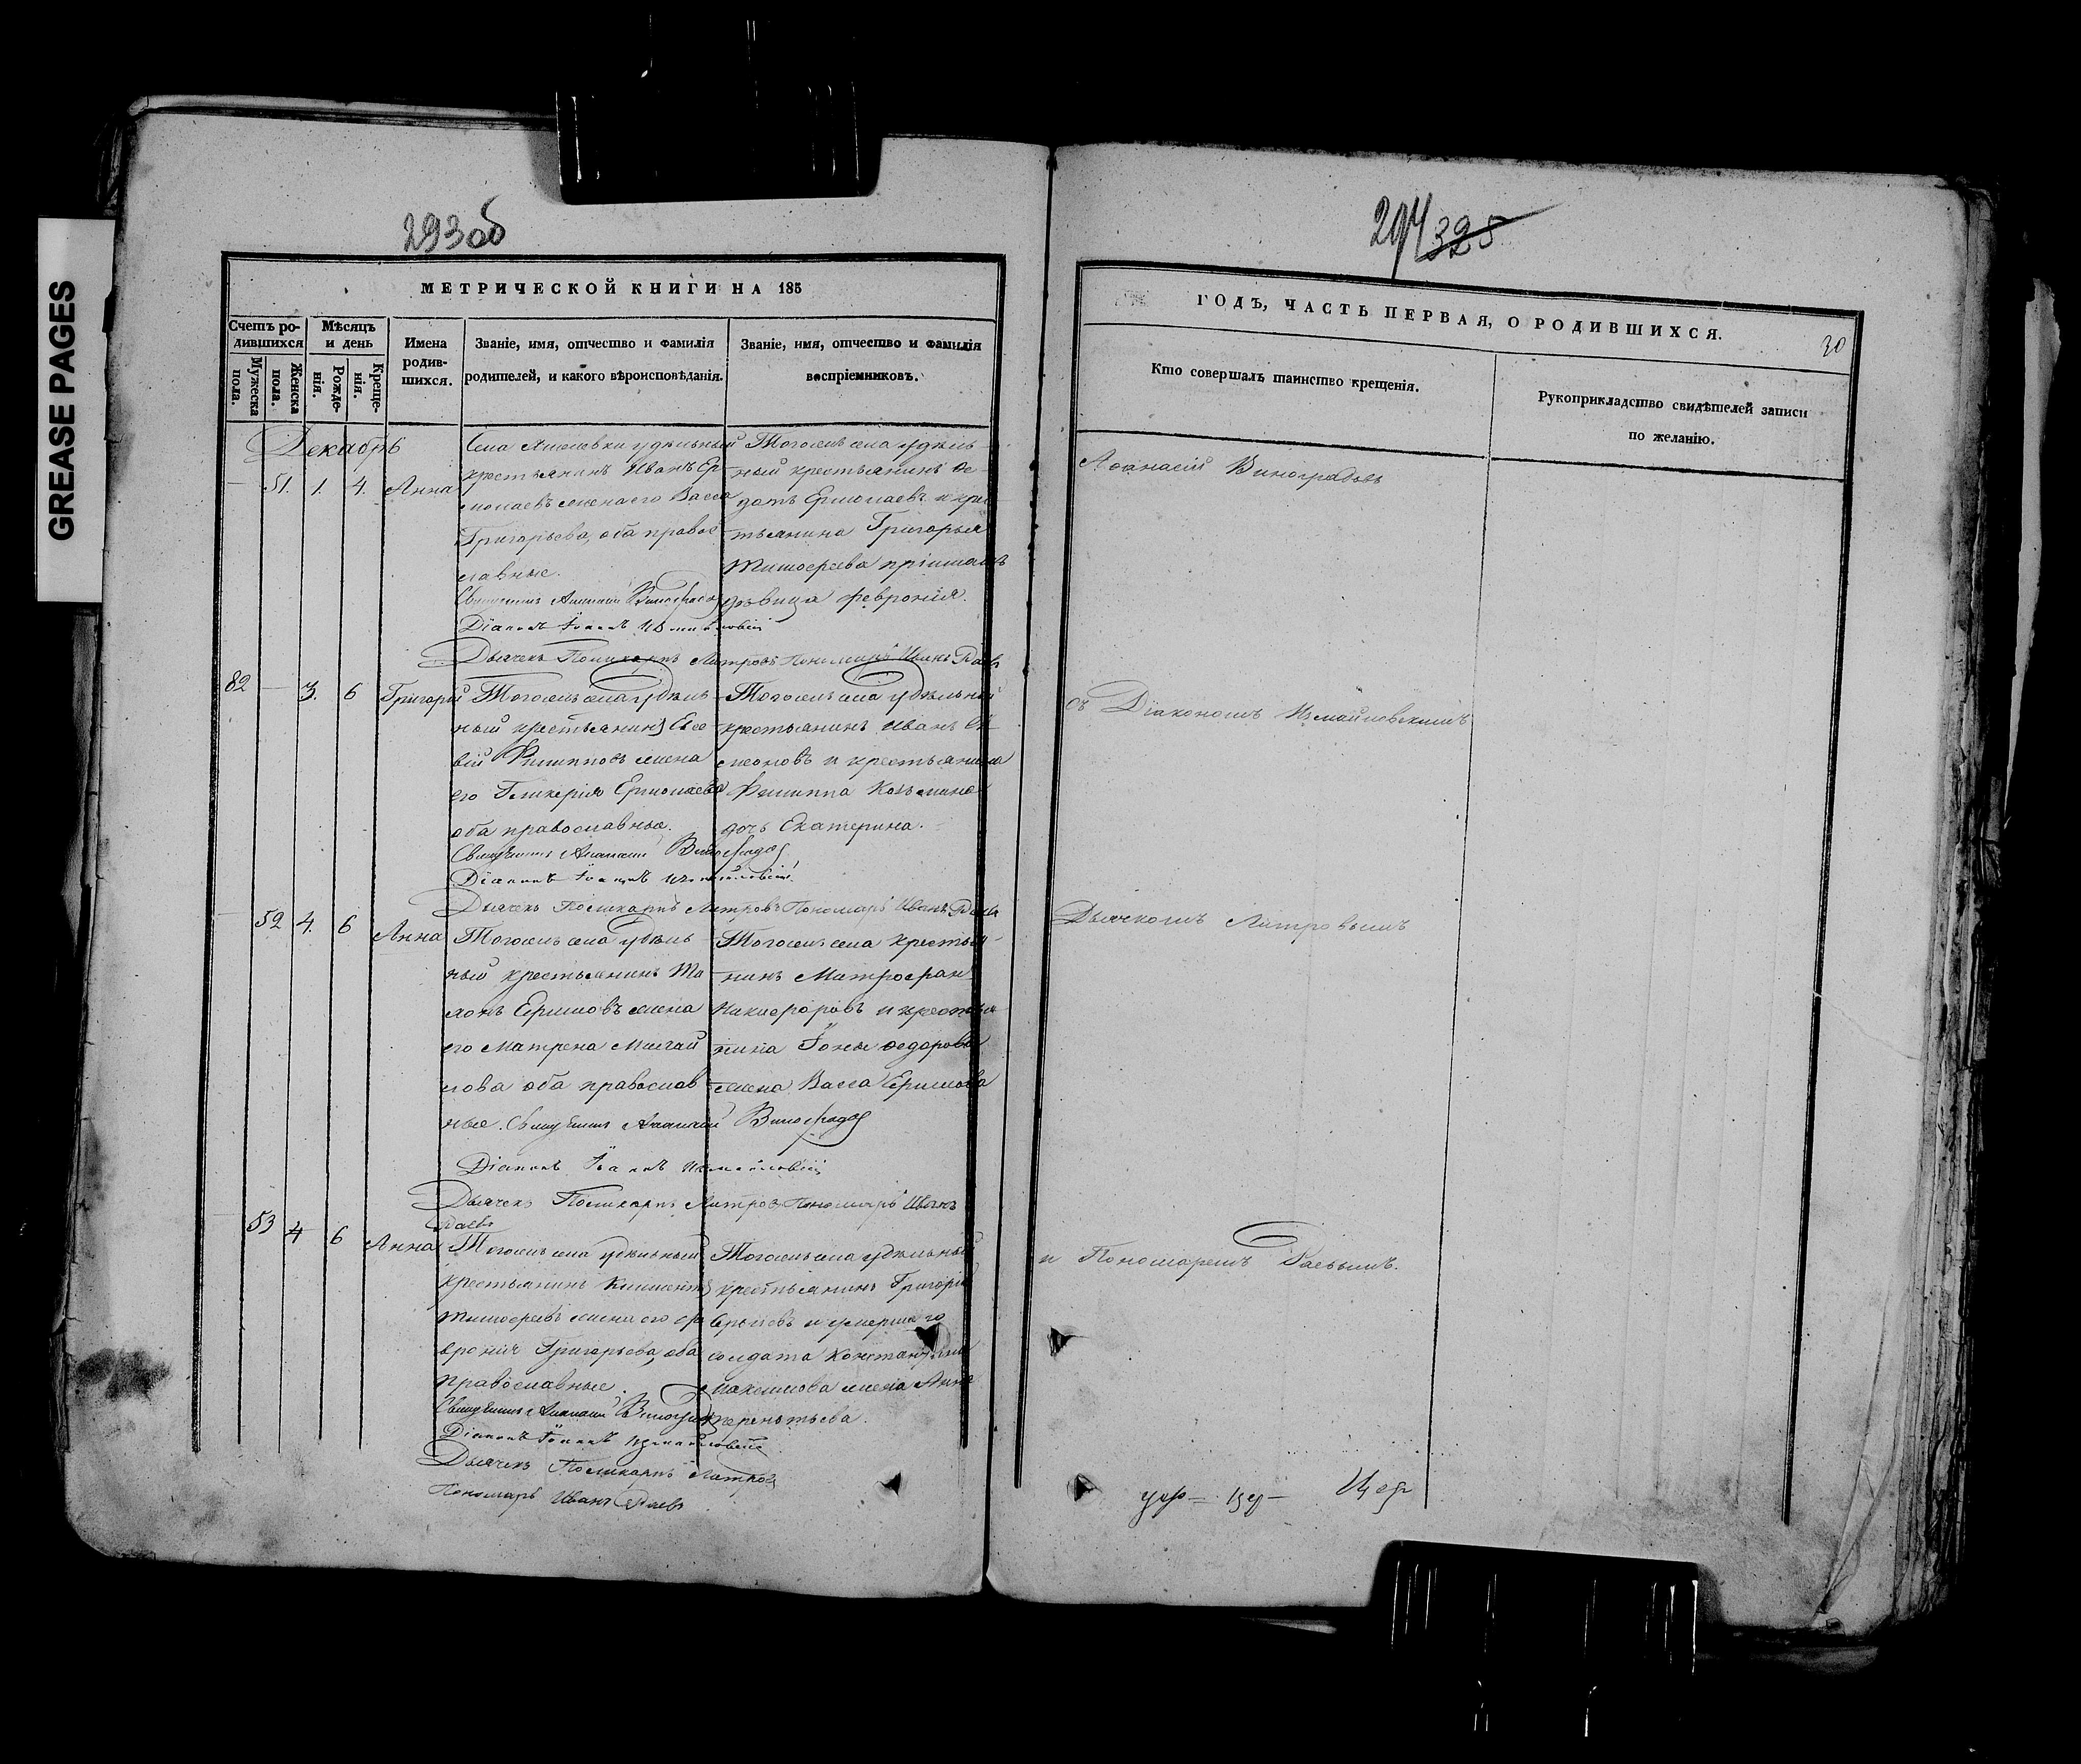 GREASE PAGES
293об
МЕТРИЧЕСКОЙ КНИГИ НА 185
Счетъ ро-
дившихся
Мужеска пола.
Женска пола.
Мѣсяцъ
и день
Рожде-
нія.
Креще-
нія.
Имена
родив-
шихся.
Званіе, имя, отчество и фамилія
родителей, и какого вѣроисповѣданія.
Званіе, имя, отчество и фамилія
воспріемниковъ.
Декабрь
51. 1. 4. Анна
Села удѣльный
крестьянинъ Иванъ Ер
молаевъ жена его Васса
Григорьева, оба право
славные.
Діаконъ Іоаннъ Измайловскій
Дьячекъ Поликарпъ Пономарь Иванъ Раевъ
Тогожъ села удѣль
ный крестьянинъ Ѳе-
дотъ Ермолаевъ и крес
тьянина Григорья
Тимоѳеева
дѣвица Февронія.
82 3. 6 Григорій
Тогожъ села удѣль
ный крестьянинъ Евсе
вій Филипповъ жена
его Гликерія Ермолаева
оба православные.
Діаконъ Іоаннъ Измайловскій
Дьячекъ Поликарпъ Пономарь Иванъ Раевъ
Тогожъ села удѣльный
крестьянинъ Иванъ Си
меоновъ и крестьянина
Филиппа Козьмина
дочь Екатерина.
52 4. 6 Анна
Тогожъ села удѣль
ный крестьянинъ
Ефимовъ жена
его Матрена Михай
лова оба православ
ные.
Діаконъ Іоаннъ Измайловскій
Дьячекъ Поликарпъ Пономарь Иванъ
Раевъ
Тогожъ села крестья
нинъ Митрофан
Никифоровъ и крестья
нина Іоны Ѳедорова
жена Васса Ефимова
53 4 6 Анна
Тогожъ села удѣльный
крестьянинъ Климентъ
Тимоѳеевъ жена его Фе
вронія Григорьева, оба
православные.
Діаконъ Іоаннъ Измайловскій
Дьячекъ Поликарпъ
Пономарь Иванъ Раевъ
Тогожъ села удѣльный
крестьянинъ Григорій
и умершаго
солдата Константина
Максимова жена Анна
Терентьева.
294 325
ГОДЪ, ЧАСТЬ ПЕРВАЯ, О РОДИВШИХСЯ.
30
Кто совершалъ таинство крещенія.
Рукоприкладство свидѣтелей записи
по желанію.
Аѳанасій Виноградовъ
съ Діакономъ Измайловскимъ
Дьячкомъ
и Пономаремъ Раевымъ.